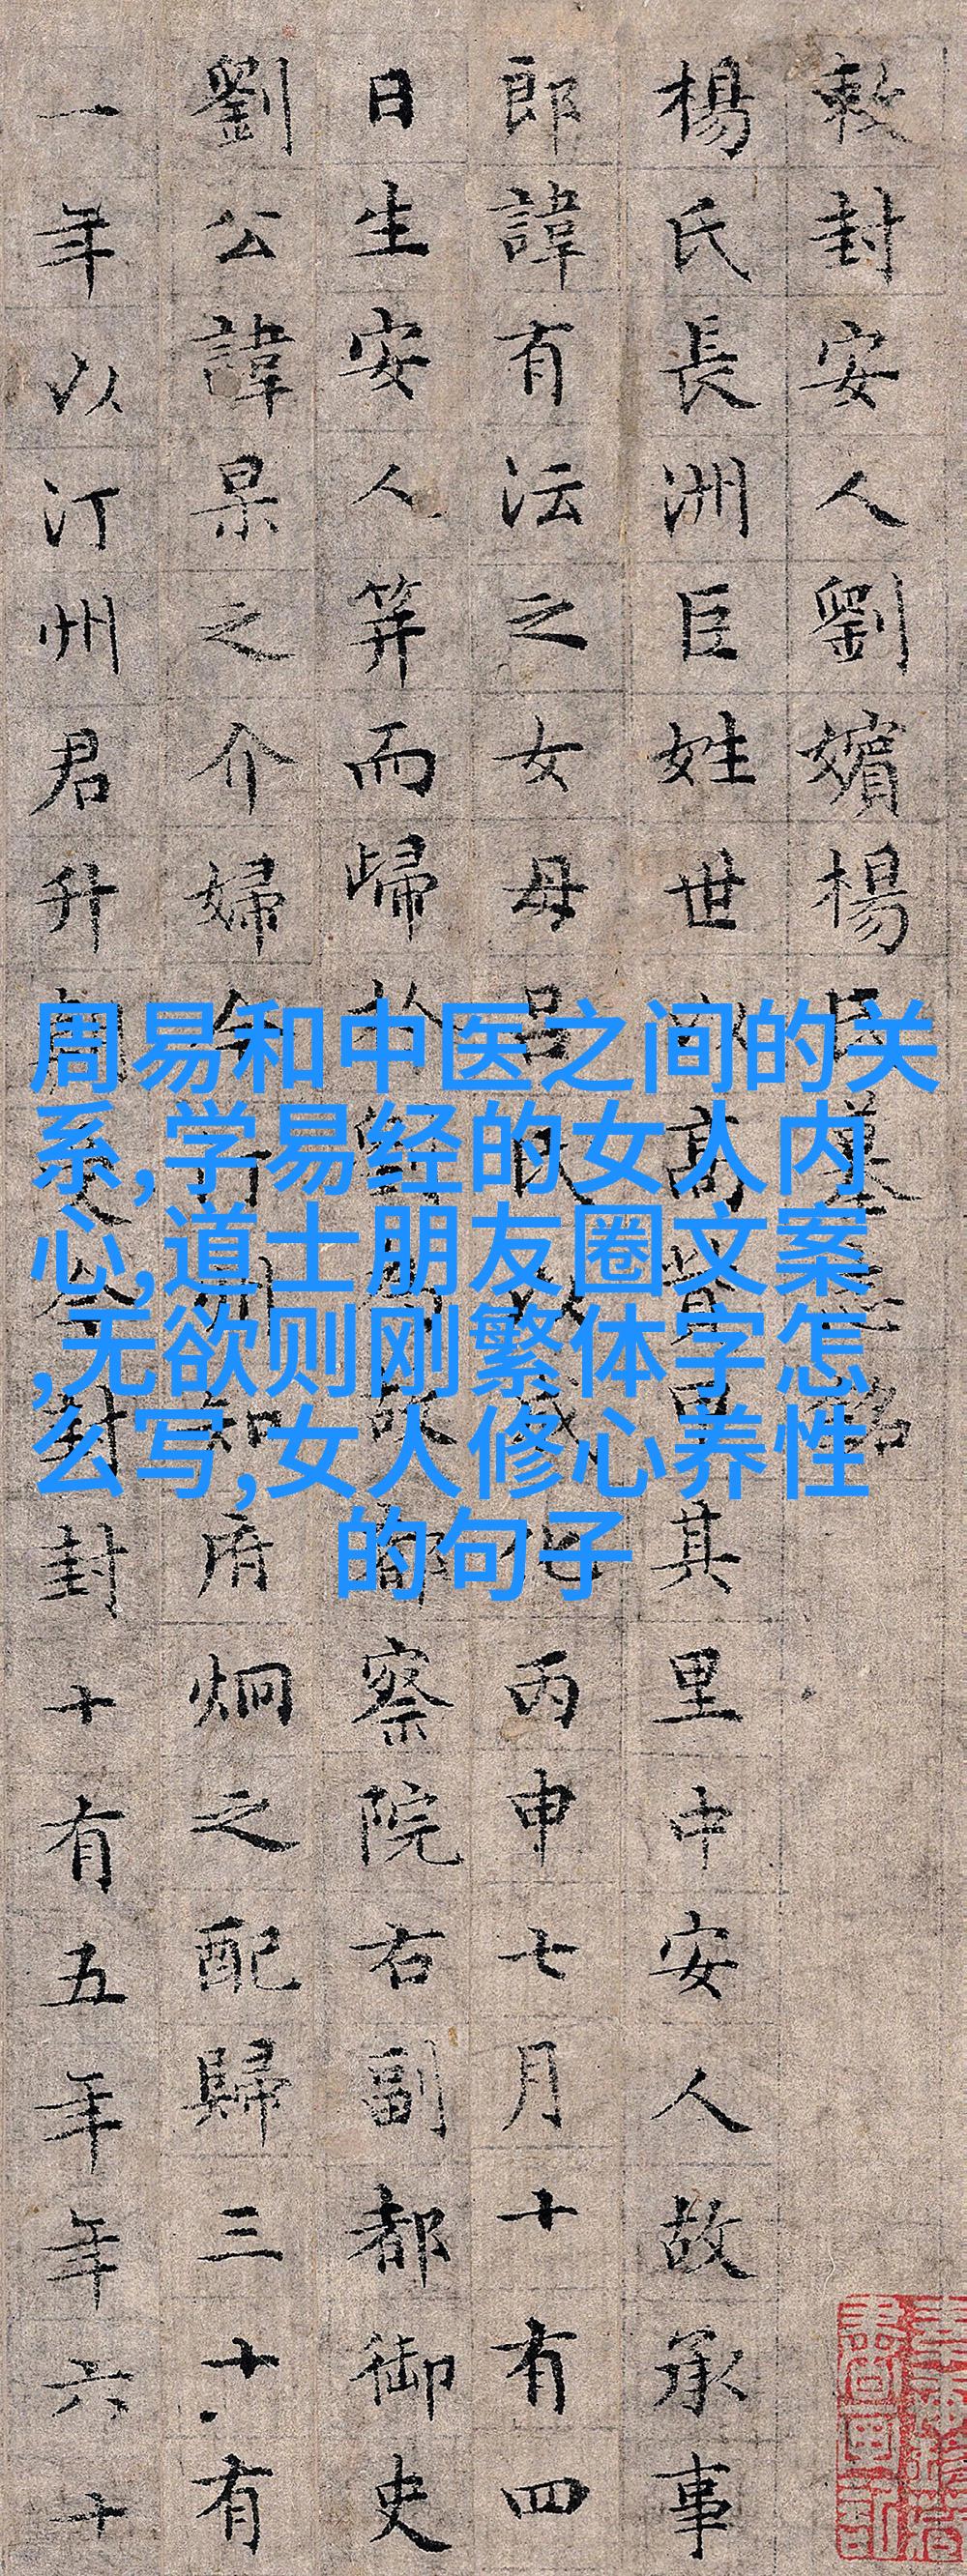 敕封安人劉嬪楊氏墓誌銘
楊氏長洲臣姓世以高貲甲其里中安人故承事
郎諱有沄之女母吕氏以成化丙申七月十有四
日生安人笄而歸於劉故都察院右副都御史
劉公諱杲之介婦今州知府炯之配歸三十有
一年以汀州君升周今封封十有五年年六十
周易和中医之间的关
系,学易经的女人内
心,道士朋友圈文案
,无欲则刚繁体字怎
么写,女人修心养性
的句子